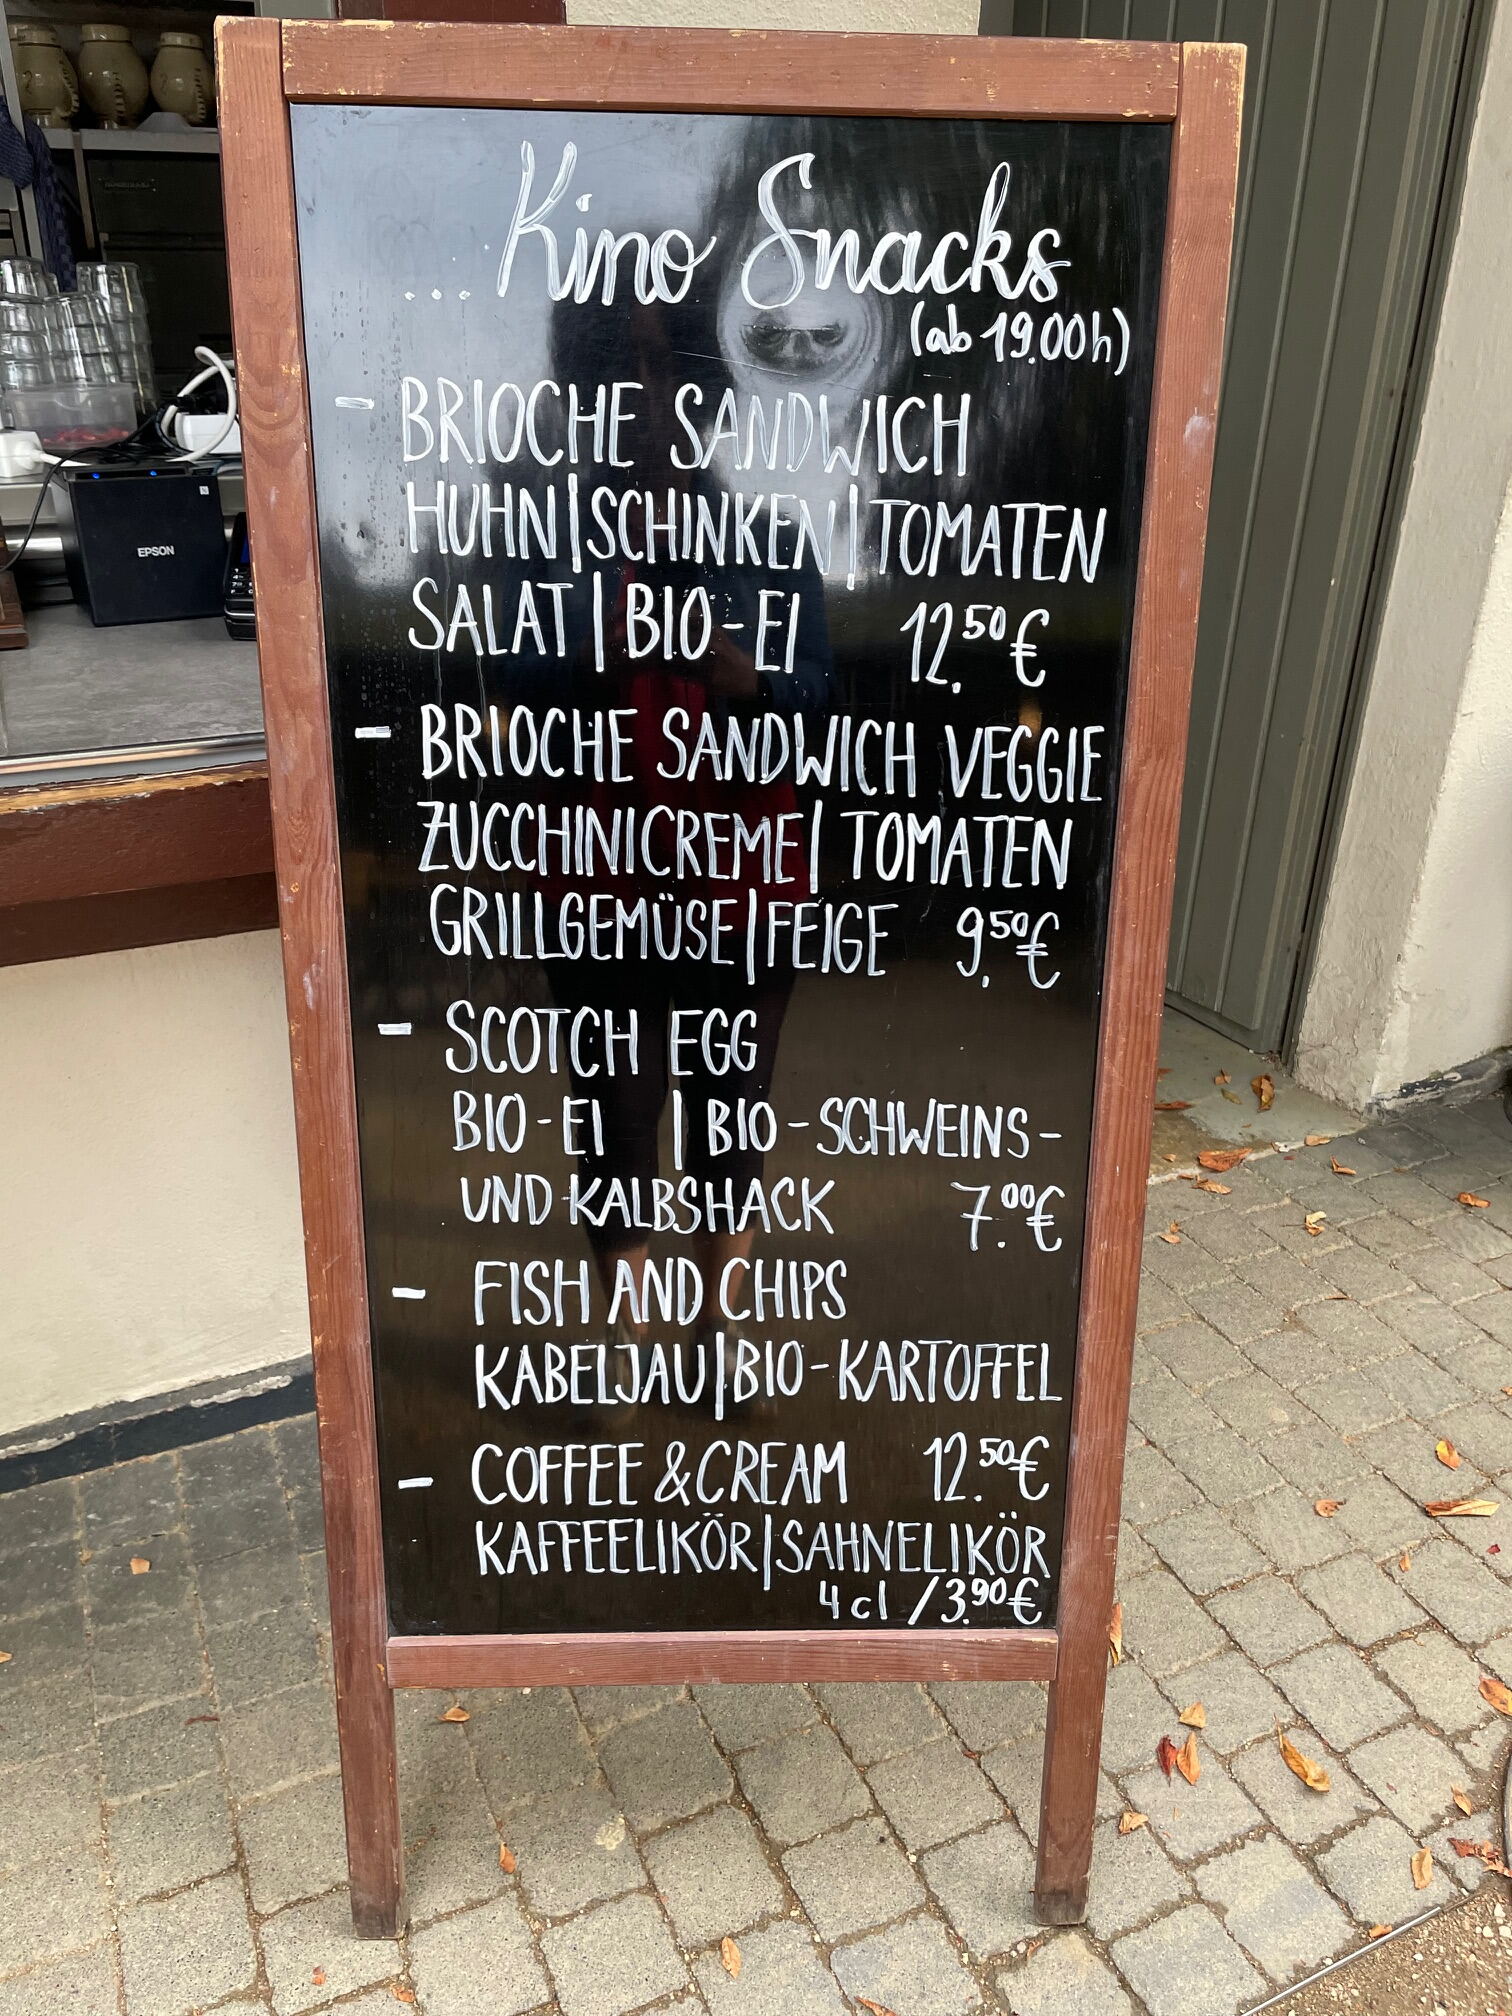 ... Kino Snacks
(ab 19.00h)
- BRIOCHE SANDWICH
HUHN|SCHINKEN|TOMATEN
SALAT|BIO-EI 12.50€
- BRIOCHE SANDWICH VEGGIE
ZUCCHINICREME|TOMATEN
GRILLGEMÜSE|FEIGE 9.50€
- SCOTCH EGG
BIO-EI | BIO-SCHWEINS-
UND KALBSHACK 7.00€
- FISH AND CHIPS
KABELJAU|BIO-KARTOFFEL
12.50€
- COFFEE & CREAM
KAFFEELIKÖR|SAHNELIKÖR
4cl /3.90€
EPSON